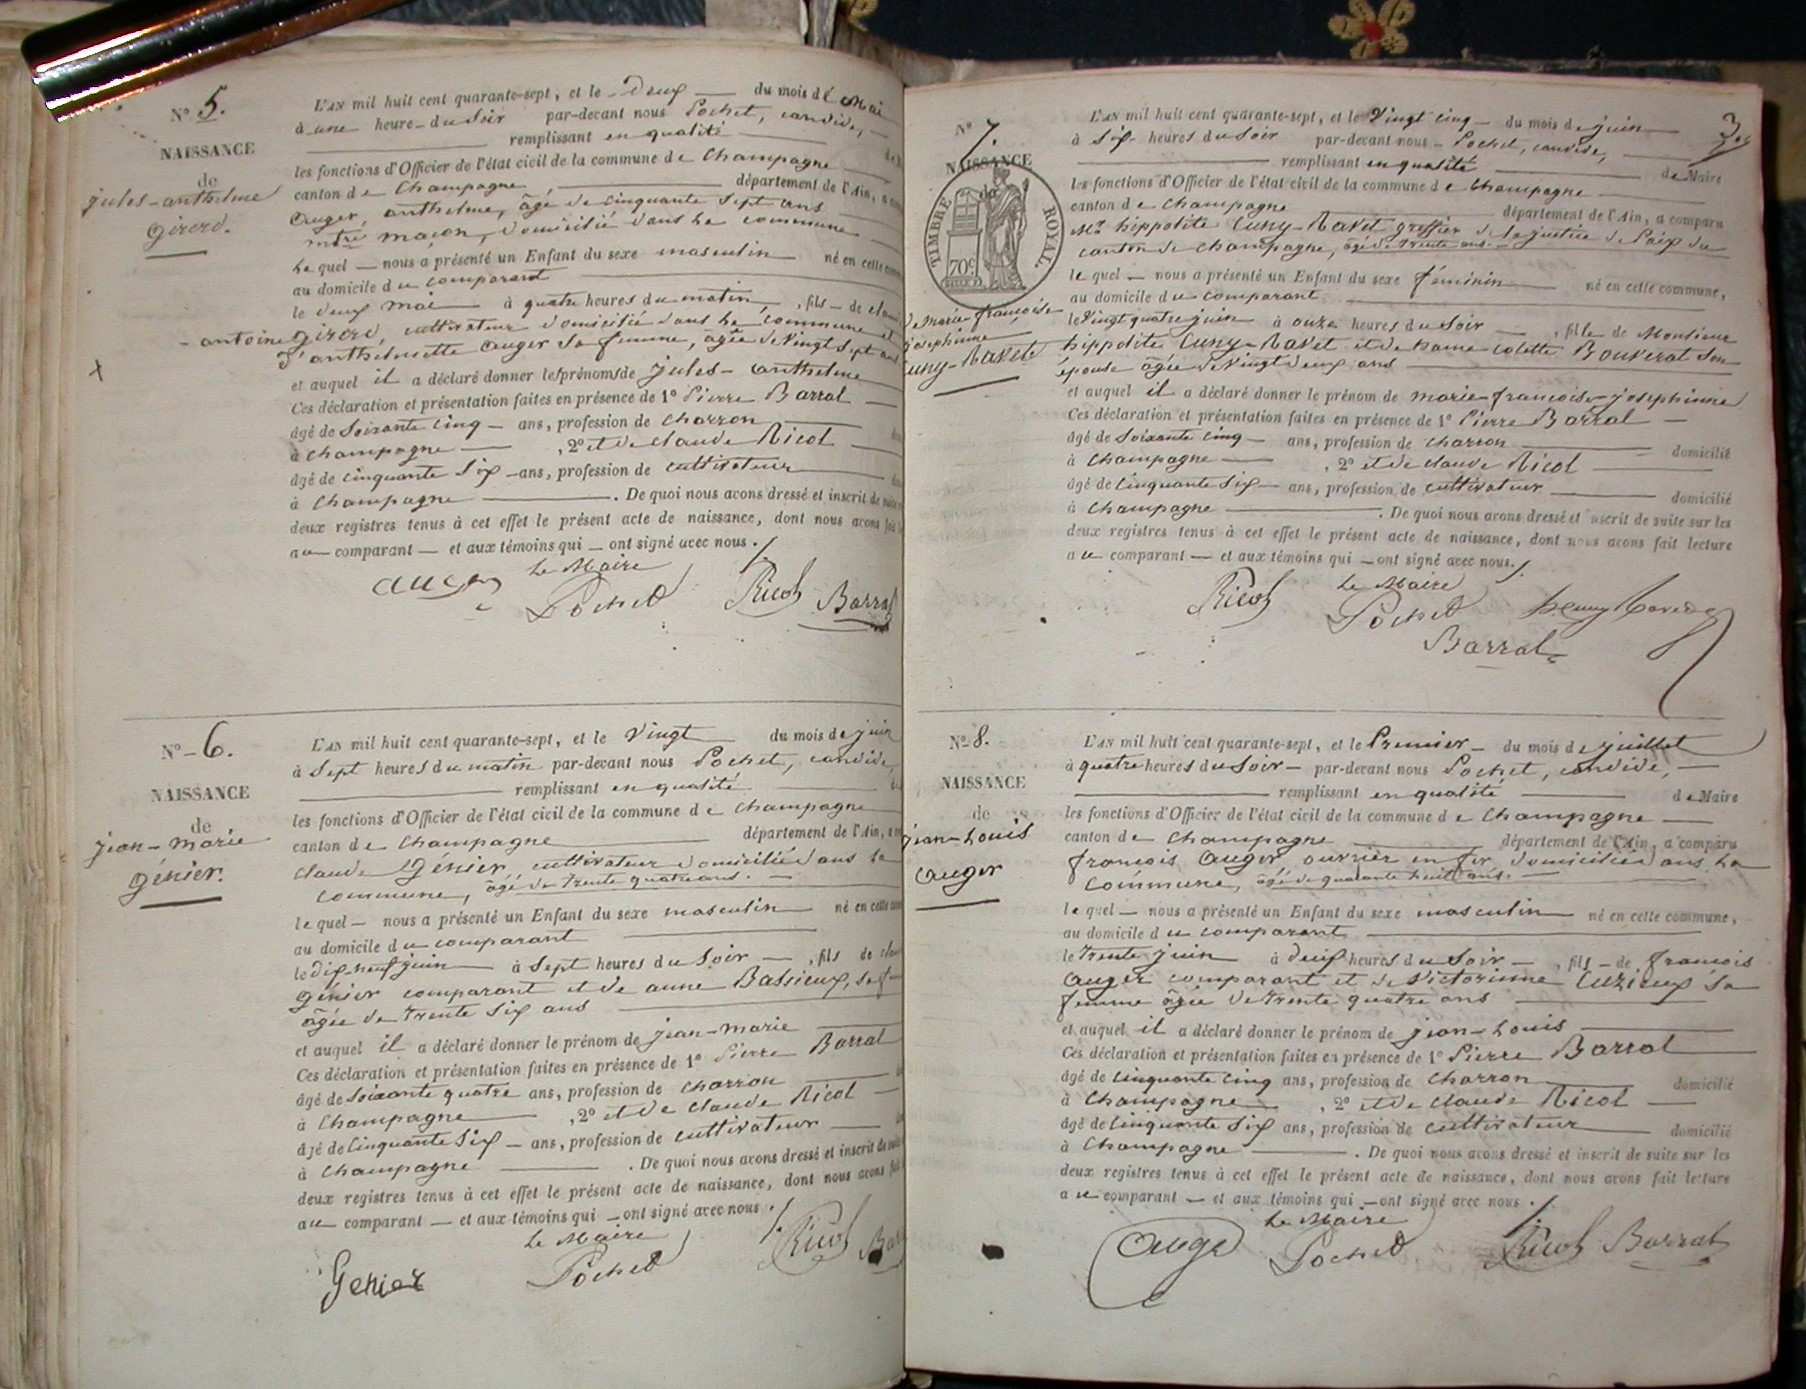 Nº 5.
NAISSANCE
de
jules-anthelme
Girerd.
L'AN mil huit cent quarante-sept, et le Deux du mois de Mai
à une heure du Soir par-devant nous Pochet, candide,
remplissant en qualité
les fonctions d'Officier de l'état civil de la commune de Champagne
canton de Champagne, département de l'Ain, a
Auger, anthelme, âgé de cinquante sept ans
mtre maçon, domicilié dans la commune
le quel nous a présenté un Enfant du sexe masculin né en cette
au domicile du comparant
le deux mai à quatre heures du matin, fils de
antoine Girerd, cultivateur domicilié dans la commune et
d'anthelmette Auger sa femme, âgée de vingt sept ans
et auquel il a déclaré donner les prénoms de jules-anthelme
Ces déclaration et présentation faites en présence de 1º Pierre Barral
âgé de soixante cinq ans, profession de charron
à champagne, 2º et de claude Ricol
âgé de cinquante six ans, profession de cultivateur
à Champagne. De quoi nous avons dressé et inscrit de suite
deux registres tenus à cet effet le présent acte de naissance, dont nous avons fait
au comparant et aux témoins qui ont signé avec nous./
Le Maire
Auger Pochet Ricol Barral
Nº 6.
NAISSANCE
de
jean-marie
Génier.
L'AN mil huit cent quarante-sept, et le Vingt du mois de juin
à Sept heures du matin par-devant nous Pochet, candide,
remplissant en qualité
les fonctions d'Officier de l'état civil de la commune de Champagne
canton de Champagne département de l'Ain, a
claude Génier, cultivateur domicilié dans la
commune, âgé de trente quatre ans.
le quel nous a présenté un Enfant du sexe masculin né en cette
au domicile du comparant
le dix neuf juin à Sept heures du Soir, fils de
Génier comparant et de anne Bassieux, sa
âgée de trente six ans
et auquel il a déclaré donner le prénom de jean-marie
Ces déclaration et présentation faites en présence de 1º Pierre Barral
âgé de soixante quatre ans, profession de charron
à Champagne, 2º et de claude Ricol
âgé de cinquante six ans, profession de cultivateur
à Champagne. De quoi nous avons dressé et inscrit de suite
deux registres tenus à cet effet le présent acte de naissance, dont nous avons fait
au comparant et aux témoins qui ont signé avec nous./
Le Maire
Genier Pochet Ricol
Nº 7.
NAISSANCE
de
TIMBRE ROYAL
70c
de marie-françoise
josephinne
Cuny-Ravet
L'AN mil huit cent quarante-sept, et le Vingt cinq du mois de juin
à Six heures du Soir par-devant nous Pochet, candide,
remplissant en qualité de Maire
les fonctions d'Officier de l'état civil de la commune de Champagne
canton de Champagne département de l'Ain, a comparu
Mr hippolite Cuny-Ravet greffier de la justice de Paix du
canton de Champagne, âgé de trente ans.
le quel nous a présenté un Enfant du sexe féminin né en cette commune,
au domicile du comparant
le Vingt quatre juin à onze heures du Soir, fille de Monsieur
hippolite Cuny-Ravet et de Dame colette Bouverat son
épouse âgée de Vingt deux ans
et auquel il a déclaré donner le prénom de marie-françoise-josephinne
Ces déclaration et présentation faites en présence de 1º Pierre Barral
âgé de Soixante cinq ans, profession de charron domicilié
à Champagne, 2º et de claude Ricol
âgé de cinquante six ans, profession de cultivateur domicilié
à Champagne. De quoi nous avons dressé et inscrit de suite sur les
deux registres tenus à cet effet le présent acte de naissance, dont nous avons fait lecture
au comparant et aux témoins qui ont signé avec nous./
Le Maire
Ricol Pochet
Barral
Nº 8.
NAISSANCE
de
jean-Louis
Auger
L'AN mil huit cent quarante-sept, et le Premier du mois de juillet
à quatre heures du Soir par-devant nous Pochet, candide,
remplissant en qualité de Maire
les fonctions d'Officier de l'état civil de la commune de Champagne
canton de Champagne département de l'Ain, a comparu
françois Auger, ouvrier en fer, domicilié dans la
commune, âgé de quarante huit ans.
le quel nous a présenté un Enfant du sexe masculin né en cette commune,
au domicile du comparant
le trente juin à deux heures du Soir, fils de françois
Auger comparant et de Victorinne Cuzieux sa
femme âgée de trente quatre ans
et auquel il a déclaré donner le prénom de jean-Louis
Ces déclaration et présentation faites en présence de 1º Pierre Barral
âgé de cinquante cinq ans, profession de charron domicilié
à Champagne, 2º et de claude Ricol
âgé de cinquante six ans, profession de cultivateur domicilié
à Champagne. De quoi nous avons dressé et inscrit de suite sur les
deux registres tenus à cet effet le présent acte de naissance, dont nous avons fait lecture
au comparant et aux témoins qui ont signé avec nous./
Le Maire
Auger Pochet Ricol Barral